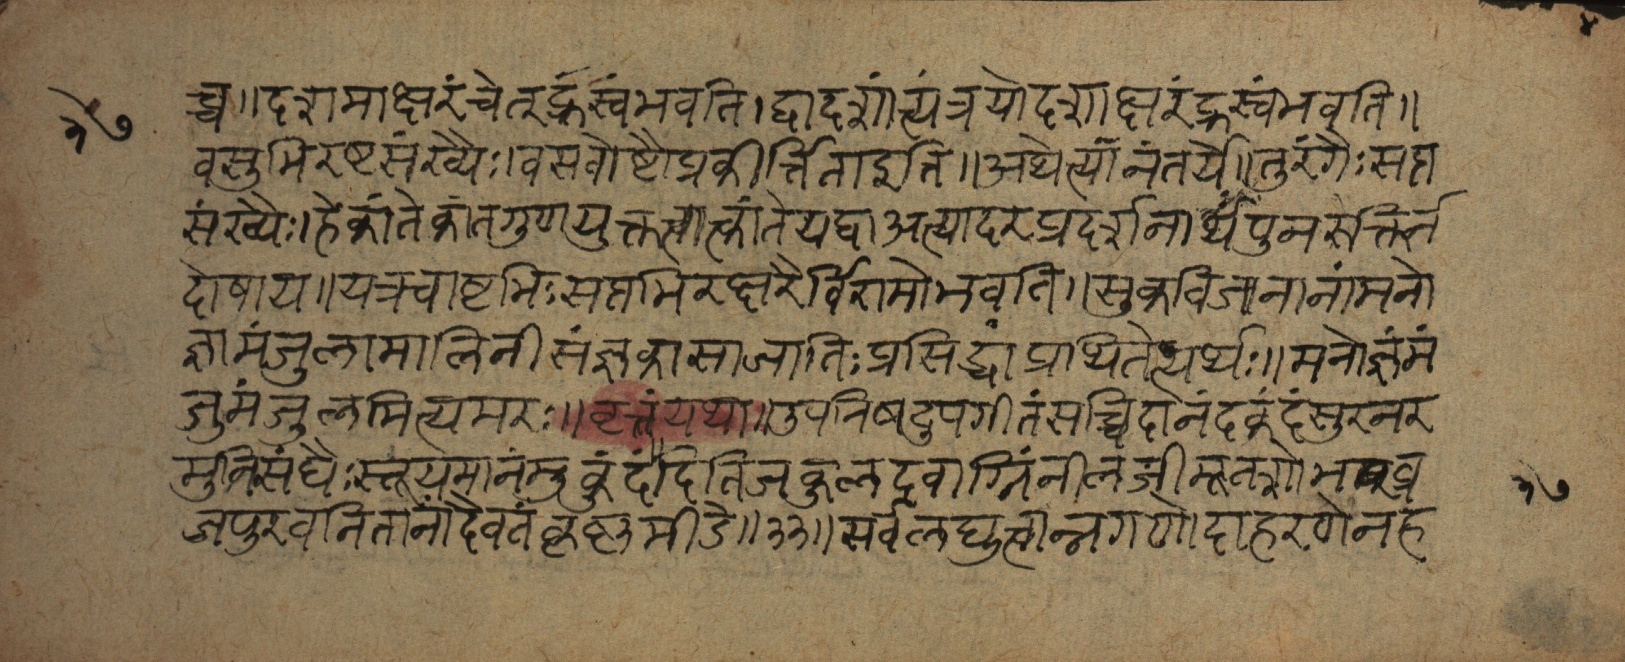 च्च॥दशमाक्षरंचेत्ह्रस्वंभवति।द्वादशांत्यंत्रयोदशाक्षरंह्रस्वंभवति॥
वसुभिरष्टसंख्यैः।वसवोष्टौप्रकीर्त्तिताइति॥अथेत्यानंतर्ये॥तुरंगैःसप्त
संख्यैः।हेकांतेकांतगुणयुक्तत्वात्कांतेयद्वाअत्यादरप्रदर्शनार्थंपुनरुक्तिर्न
दोषाय॥यत्रचाष्टभिःसप्तभिरक्षरैर्विरामोभवति॥सुकविजनानांमनो
ज्ञामंजुलामालिनीसंज्ञकासाजातिःप्रसिद्धाप्रथितेत्यर्थः॥मनोज्ञंमं
जुमंजुलमित्यमरः॥वृत्तंयथा॥उपनिषदुपगीतंसच्चिदानंदकंदंसुरनर
मुनिसंघैःस्तूयमानंमुकुंदंदितिजकुलदवाग्निंनीलजीमूतशोभंव्र
जपुरवनितानांदैवतंकृष्णमीडे॥३३॥सर्वलघुत्वान्नगणोदाहरणेनह
१७
१७